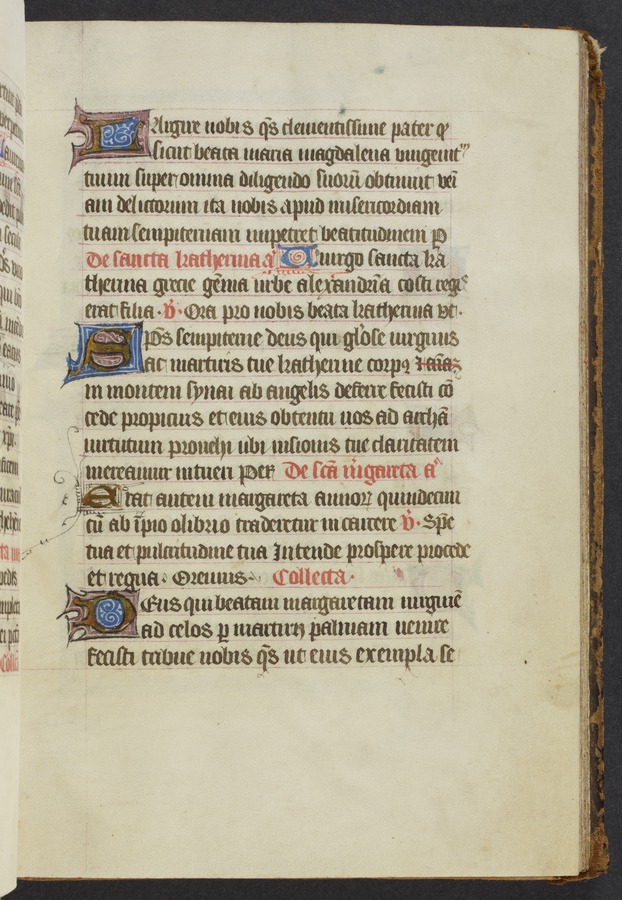 Largire nobis q̄s clementissime pater q̄
sicut beata maria magdalena unigenitū
tuum super omnia diligendo suorū obtinuit veī
am delictorum ita nobis apud misericordiam
tuam sempiternam impetret beatitudinem P
De sancta katherina aͣ Uirgo sancta ka
therina grecie gēma urbe alexandria costi regꝭ
erat filia · v̄ · Ora pro nobis beata katherina vt ·
Omps sempiterne deus qui gl̄ose uirginis
ac martiris tue katherine corpꝯ
in montem synai ab angelis deferre fecisti cō
cede propicius et eius obtentu nos ad arcē
uirtutum prouehi ubi uisionis tue claritatem
mereamur intueri Per De scā m̄gareta aͣ
Erat autem margareta annoꝝ quindecim
cū ab īpio olibrio traderetur in carcere v̄ · Spē
tua et pulcritudine tua Intende prospere procede
et regna · Oremus · Collecta ·
Deus qui beatam margaretam uirginē
ad celos ꝑ martirij palmam uenire
fecisti tribue nobis q̄s ut eius exempla se